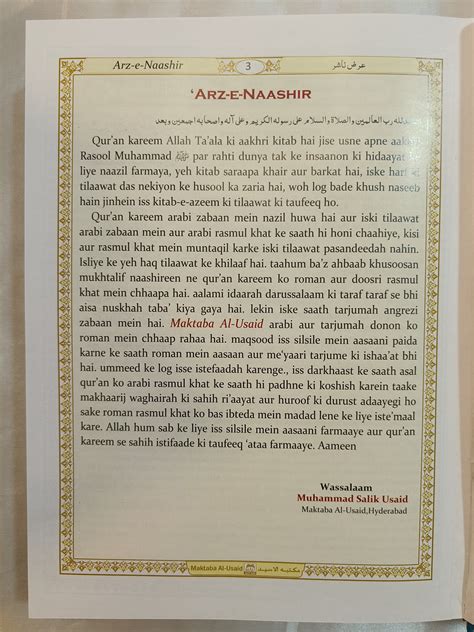 Arz-e-Naashir 3 عرض ناشر
‘ARZ-E-NAASHIR
لله رب العالمين والصلاة والسلام على رسوله الكريم وعلى آله واصحابه اجمعين وبعد
Qur'an kareem Allah Ta'ala ki aakhri kitab hai jise usne apne aakhri
Rasool Muhammad ﷺ par rahti dunya tak ke insaanon ki hidaayat ke
liye naazil farmaya, yeh kitab saraapa khair aur barkat hai, iske harf ki
tilaawat das nekiyon ke husool ka zaria hai, woh log bade khush naseeb
hain jinhein iss kitab-e-azeem ki tilaawat ki taufeeq ho.
Qur'an kareem arabi zabaan mein nazil huwa hai aur iski tilaawat
arabi zabaan mein aur arabi rasmul khat ke saath hi honi chaahiye, kisi
aur rasmul khat mein muntaqil karke iski tilaawat pasandeedah nahin.
Isliye ke yeh haq tilaawat ke khilaaf hai. taahum ba'z ahbaab khusoosan
mukhtalif naashireen ne qur'an kareem ko roman aur doosri rasmul
khat mein chhaapa hai. aalami idaarah darussalaam ki taraf taraf se bhi
aisa nuskhah taba' kiya gaya hai. lekin iske saath tarjumah angrezi
zabaan mein hai. Maktaba Al-Usaid arabi aur tarjumah donon ko
roman mein chhaap rahaa hai. maqsood iss silsile mein aasaani paida
karne ke saath roman mein aasaan aur me'yaari tarjume ki ishaa'at bhi
hai. ummeed ke log isse istefaadah karenge., iss darkhaast ke saath asal
qur'an ko arabi rasmul khat ke saath hi padhne ki koshish karein taake
makhaarij waghairah ki sahih ri'aayat aur huroof ki durust adaayegi ho
sake roman rasmul khat ko bas ibteda mein madad lene ke liye iste'maal
kare. Allah hum sab ke liye iss silsile mein aasaani farmaaye aur qur'an
kareem se sahih istifaade ki taufeeq 'ataa farmaaye. Aameen
Wassalaam
Muhammad Salik Usaid
Maktaba Al-Usaid,Hyderabad
Maktaba Al-Usaid مكتبه الاسيد